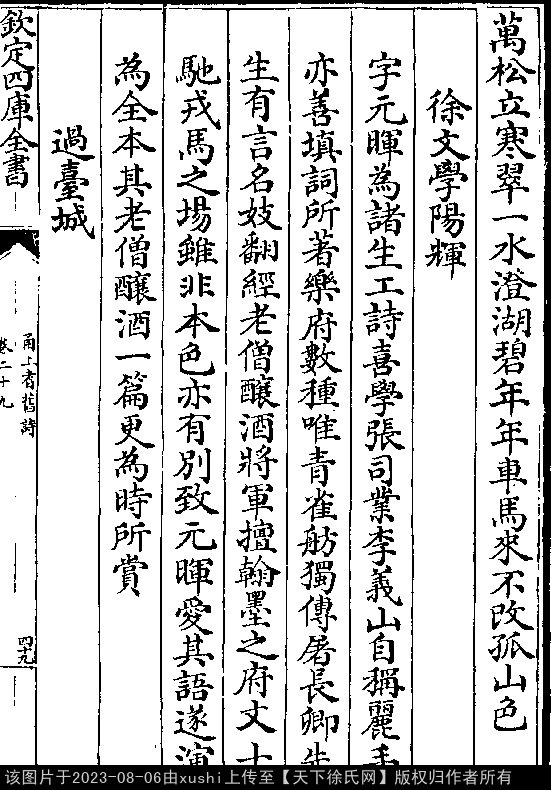 萬松立寒翠一水澄湖碧年年車馬來不改孤山色
徐文學陽輝
字元暉為諸生工詩喜學張司業李義山自稱麗手
亦善填詞所著樂府數種唯青雀舫獨傳屠長卿先
生有言名妓翻經老僧釀酒將軍擅翰墨之府文士
馳戎馬之場雖非本色亦有別致元暉愛其語遂演
為全本其老僧釀酒一篇更為時所賞
過臺城
欽定四庫全書
甬上耆舊詩
卷二十九
四十九
该图片于2023-08-06由xushi上传至【天下徐氏网】版权归作者所有